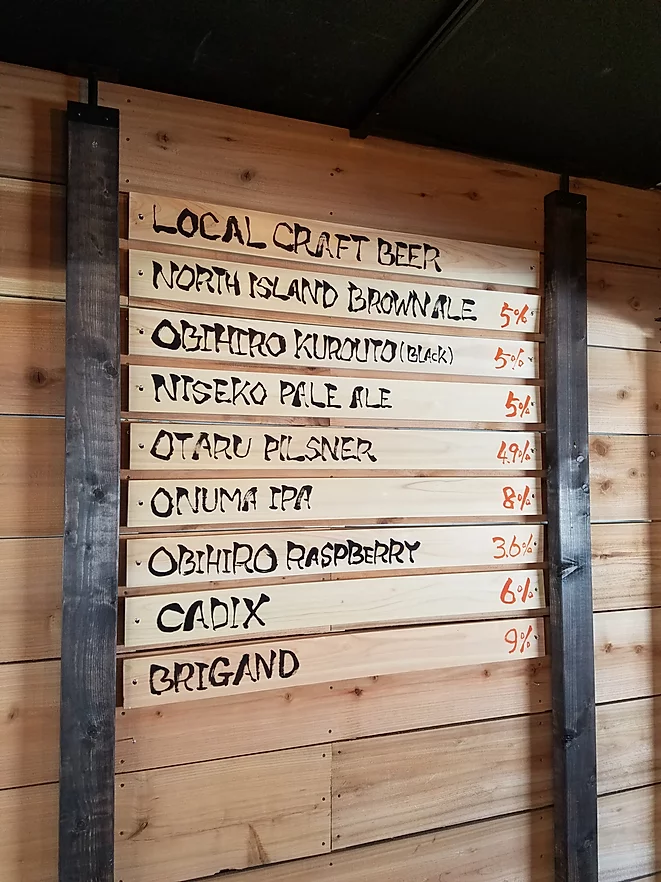 LOCAL CRAFT BEER
NORTH ISLAND BROWN ALE 5%
OBIHIRO KUROUTO (BLACK) 5%
NISEKO PALE ALE 5%
OTARU PILSNER 4.9%
ONUMA IPA 8%
OBIHIRO RASPBERRY 3.6%
CADIX 6%
BRIGAND 9%